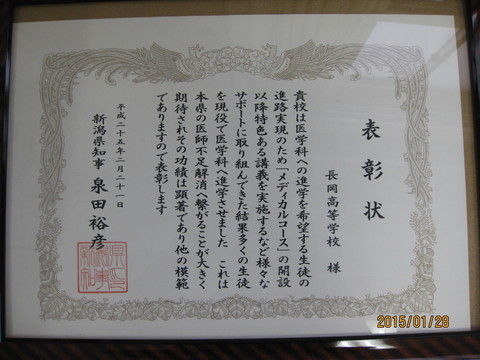 表彰状
長岡高等学校 様
貴校は医学科への進学を希望する生徒の
進路実現のため「メディカルコース」の開設
以降特色ある講義を実施するなど様々な
サポートに取り組んできた結果多くの生徒
を現役で医学科へ進学させました これは
本県の医師不足解消へ繋がることが大きく
期待されその功績は顕著であり他の模範
でありますので表彰します
平成二十五年二月二十一日
新潟県知事 泉田裕彦
新潟県知事之印
2015/01/28